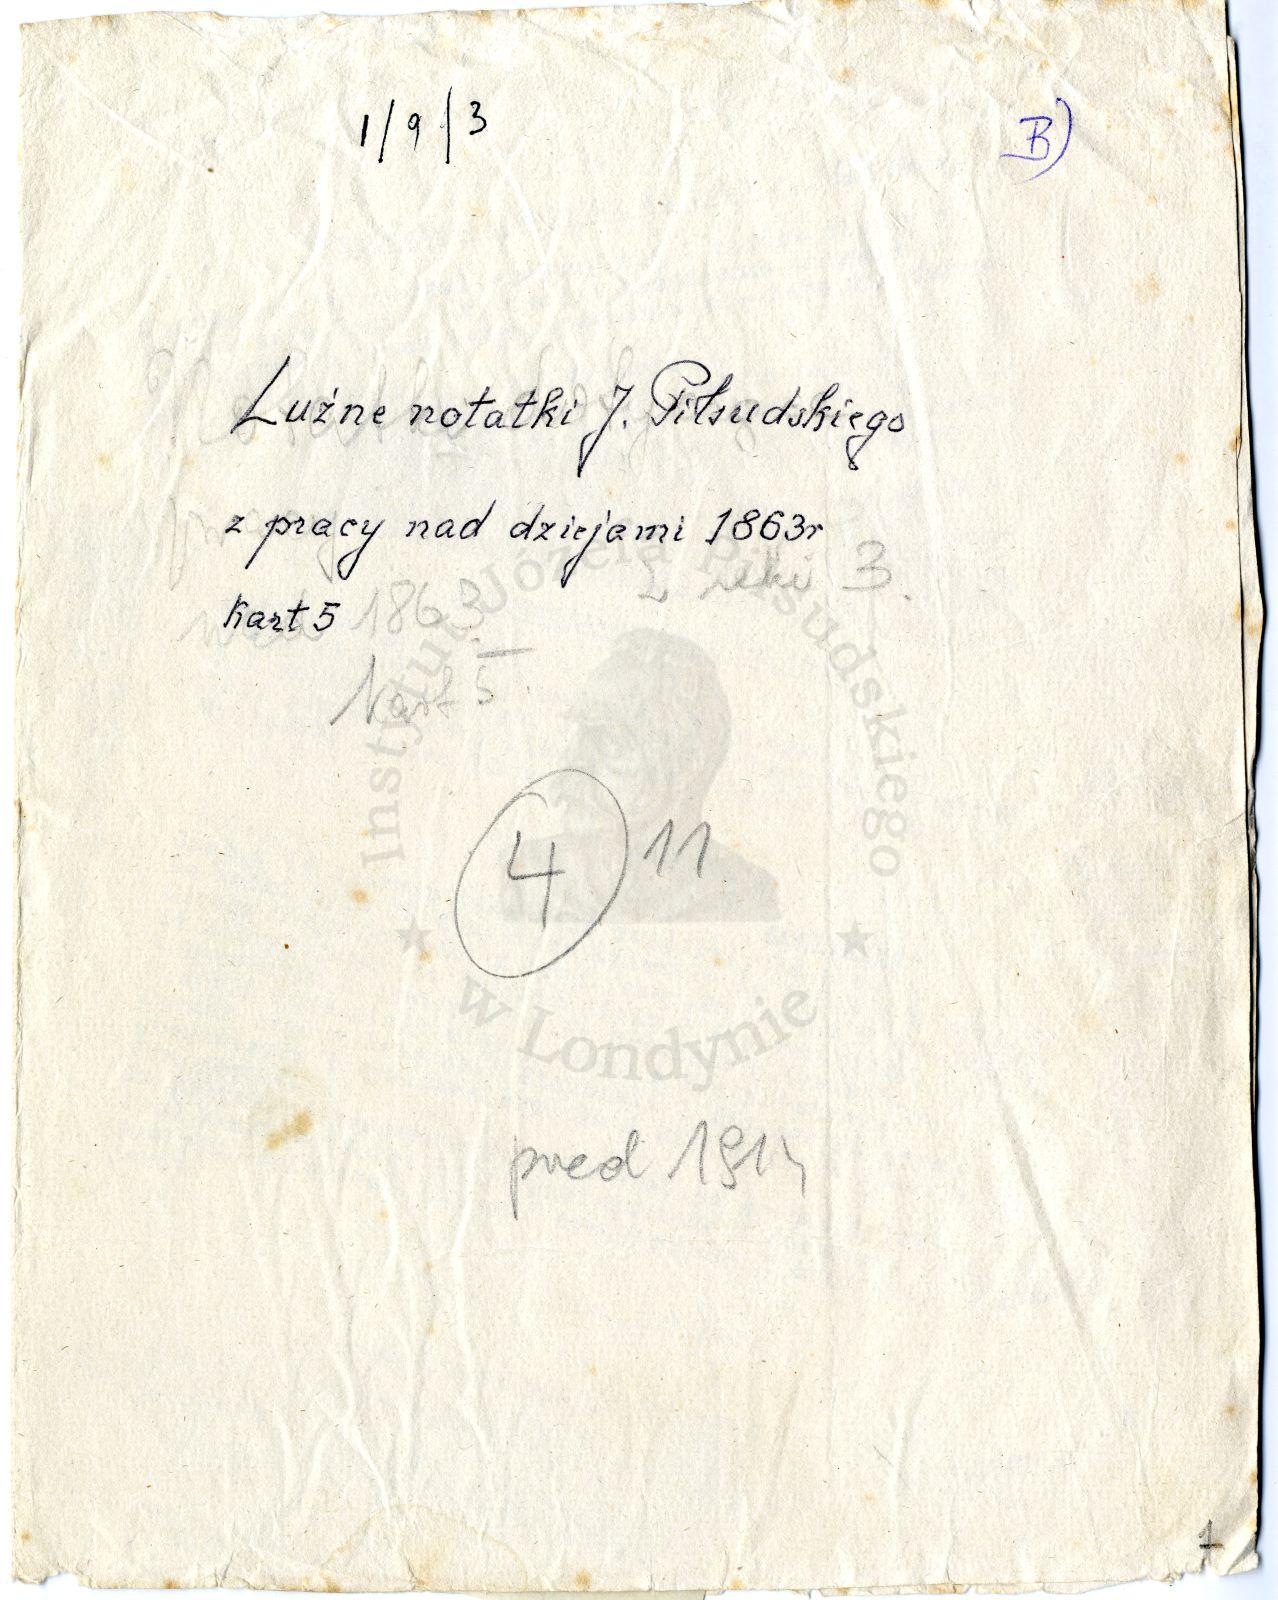 1/9/3
B)
Luźne notatki J. Piłsudskiego
z pracy nad dziejami 1863r
kart 5
1863
Kart 5
3.
4 11
pred 1914
Instytut Józefa Piłsudskiego
w Londynie
1